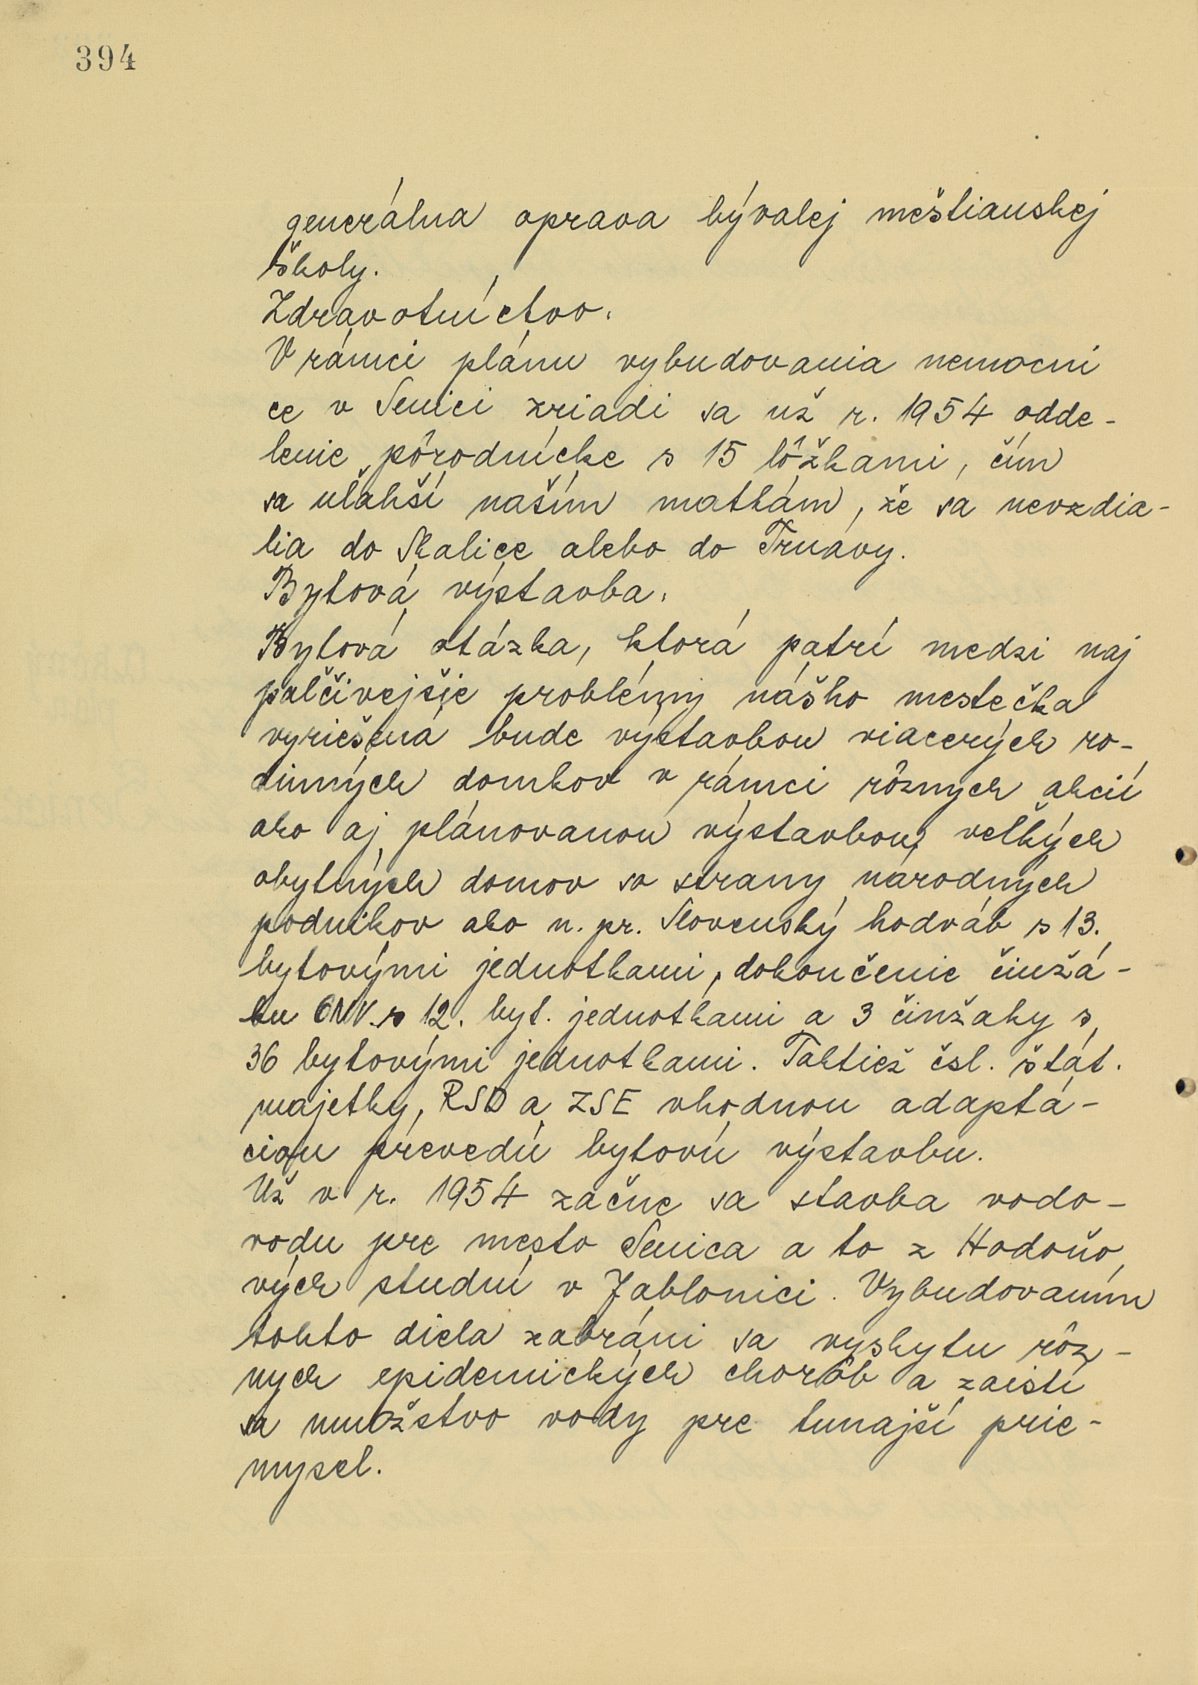 394
generálna oprava bývalej meštianskej
školy.
Zdravotníctvo.
V rámci plánu vybudovania nemocni
ce v Senici zriadi sa už r. 1954 odde-
lenie pôrodnícke s 15 lôžkami, čím
sa uľahší našim matkám, že sa nevzdia-
lia do Skalice alebo do Trnavy.
Bytová výstavba.
Bytová otázka, ktorá patrí medzi naj
palčivejšie problémy nášho mestečka
vyriešená bude výstavbou viacerých ro-
dinných domkov v rámci rôznych akcií
ako aj plánovanou výstavbou veľkých
obytných domov so strany národných
podnikov ako n. pr. Slovenský hodváb s 13.
bytovými jednotkami, dokončenie činžá-
ku ONV. s 12. byt. jednotkami a 3 činžaky s
36 bytovými jednotkami. Taktiež čsl. štát.
majetky, RSD a ZSE vhodnou adaptá-
ciou prevedú bytovú výstavbu.
Už v r. 1954 začne sa stavba vodo-
vodu pre mesto Senica a to z Hodoňo
vých studní v Jablonici. Vybudovaním
tohto diela zabráni sa výskytu rôz-
nych epidemických chorôb a zaistí
sa množstvo vody pre tunajší prie-
mysel.